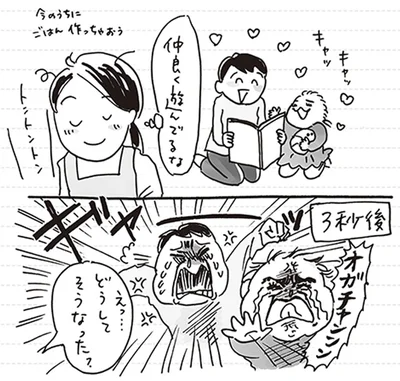 今のうちに
ごはん 作っちゃおう
トントントントン
仲良く
遊んでるな
キャッ
キャッ
3秒後
オガチャンンン
ギャー
えっ…
どうして
そうなった?